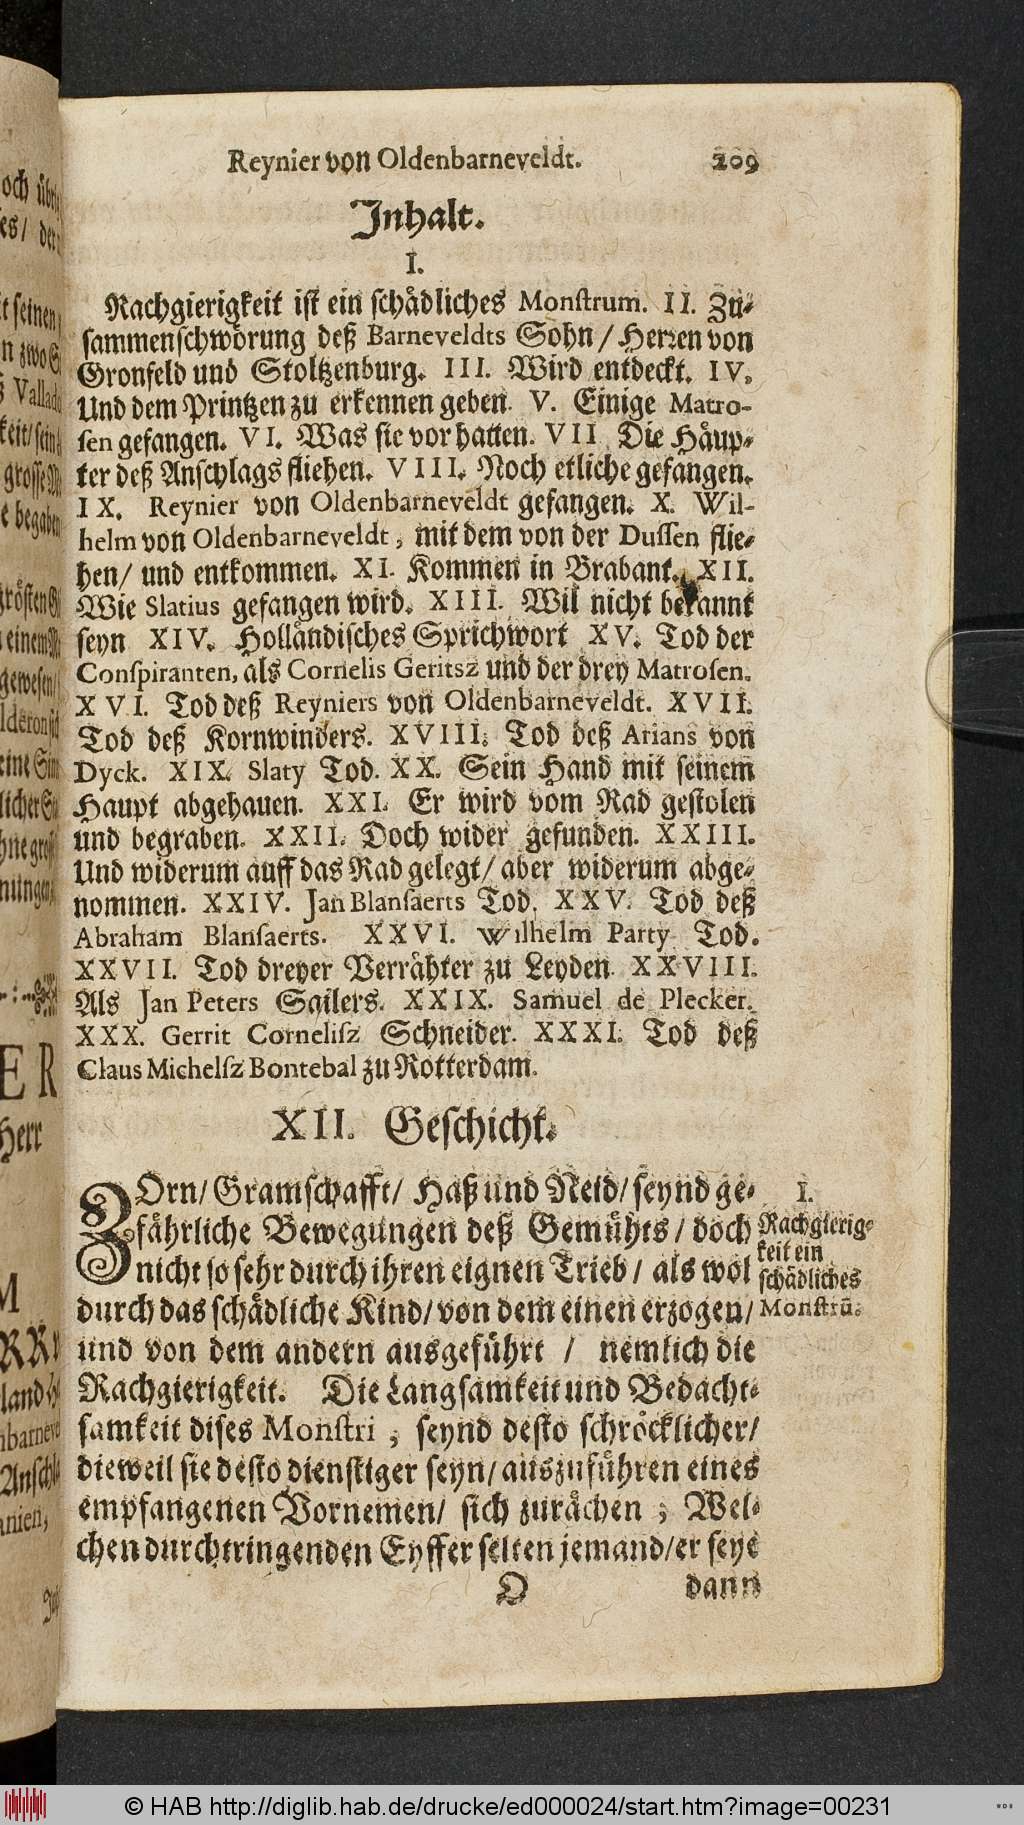 Reynier von Oldenbarneveldt. 209
Inhalt.
I.
Rachgierigkeit ist ein schädliches Monstrum. II. Zu-
sammenschwörung deß Barneveldts Sohn / Herren von
Gronfeld und Stoltzenburg. III. Wird entdeckt. IV.
Und dem Printzen zu erkennen geben. V. Einige Matro-
sen gefangen. VI. Was sie vor hatten. VII Die Häup-
ter deß Anschlags fliehen. VIII. Noch etliche gefangen.
IX. Reynier von Oldenbarneveldt gefangen. X. Wil-
helm von Oldenbarneveldt, mit dem von der Dussen flie-
hen/ und entkommen. XI. Kommen in Brabant. XII.
Wie Slatius gefangen wird. XIII. Wil nicht bekannt
seyn XIV. Holländisches Sprichwort XV. Tod der
Conspiranten, als Cornelis Geritsz und der drey Matrosen.
XVI. Tod deß Reyniers von Oldenbarneveldt. XVII.
Tod deß Kornwinders. XVIII. Tod deß Arians von
Dyck. XIX. Slaty Tod. XX. Sein Hand mit seinem
Haupt abgehauen. XXI. Er wird vom Rad gestolen
und begraben. XXII. Doch wider gefunden. XXIII.
Und widerum auff das Rad gelegt/ aber widerum abge-
nommen. XXIV. Jan Blansaerts Tod. XXV. Tod deß
Abraham Blansaerts. XXVI. Wilhelm Party Tod.
XXVII. Tod dreyer Verrähter zu Leyden. XXVIII.
Als Jan Peters Sailers. XXIX. Samuel de Plecker.
XXX. Gerrit Cornelisz Schneider. XXXI. Tod deß
Claus Michelsz Bontebal zu Rotterdam.
XII. Geschicht.
ZOrn/ Gramschafft/ Haß und Neid/ seynd ge-
fährliche Bewegungen deß Gemühts / doch
nicht so sehr durch ihren eignen Trieb / als wol
durch das schädliche Kind/ von dem einen erzogen/
und von dem andern ausgeführt / nemlich die
Rachgierigkeit. Die Langsamkeit und Bedacht-
samkeit dises Monstri, seynd desto schröcklicher/
dieweil sie desto dienstiger seyn/ auszuführen eines
empfangenen Vornemen/ sich zurächen; Wel-
chen durchtringenden Eyffer selten jemand/ er seye
O dann
I.
Rachgierig-
keit ein
schädliches
Monstrū.
och übri
es/ der
it seinen
n zwo S
Vallado
keit/ sein
grosse M
e begaben
grösten G
einem M
gewesen/
lderon
eine Sin
licher
hne
nungen
ER
Herr
M
land
nbarneve
Anschl
anien,
© HAB http://diglib.hab.de/drucke/ed000024/start.htm?image=00231